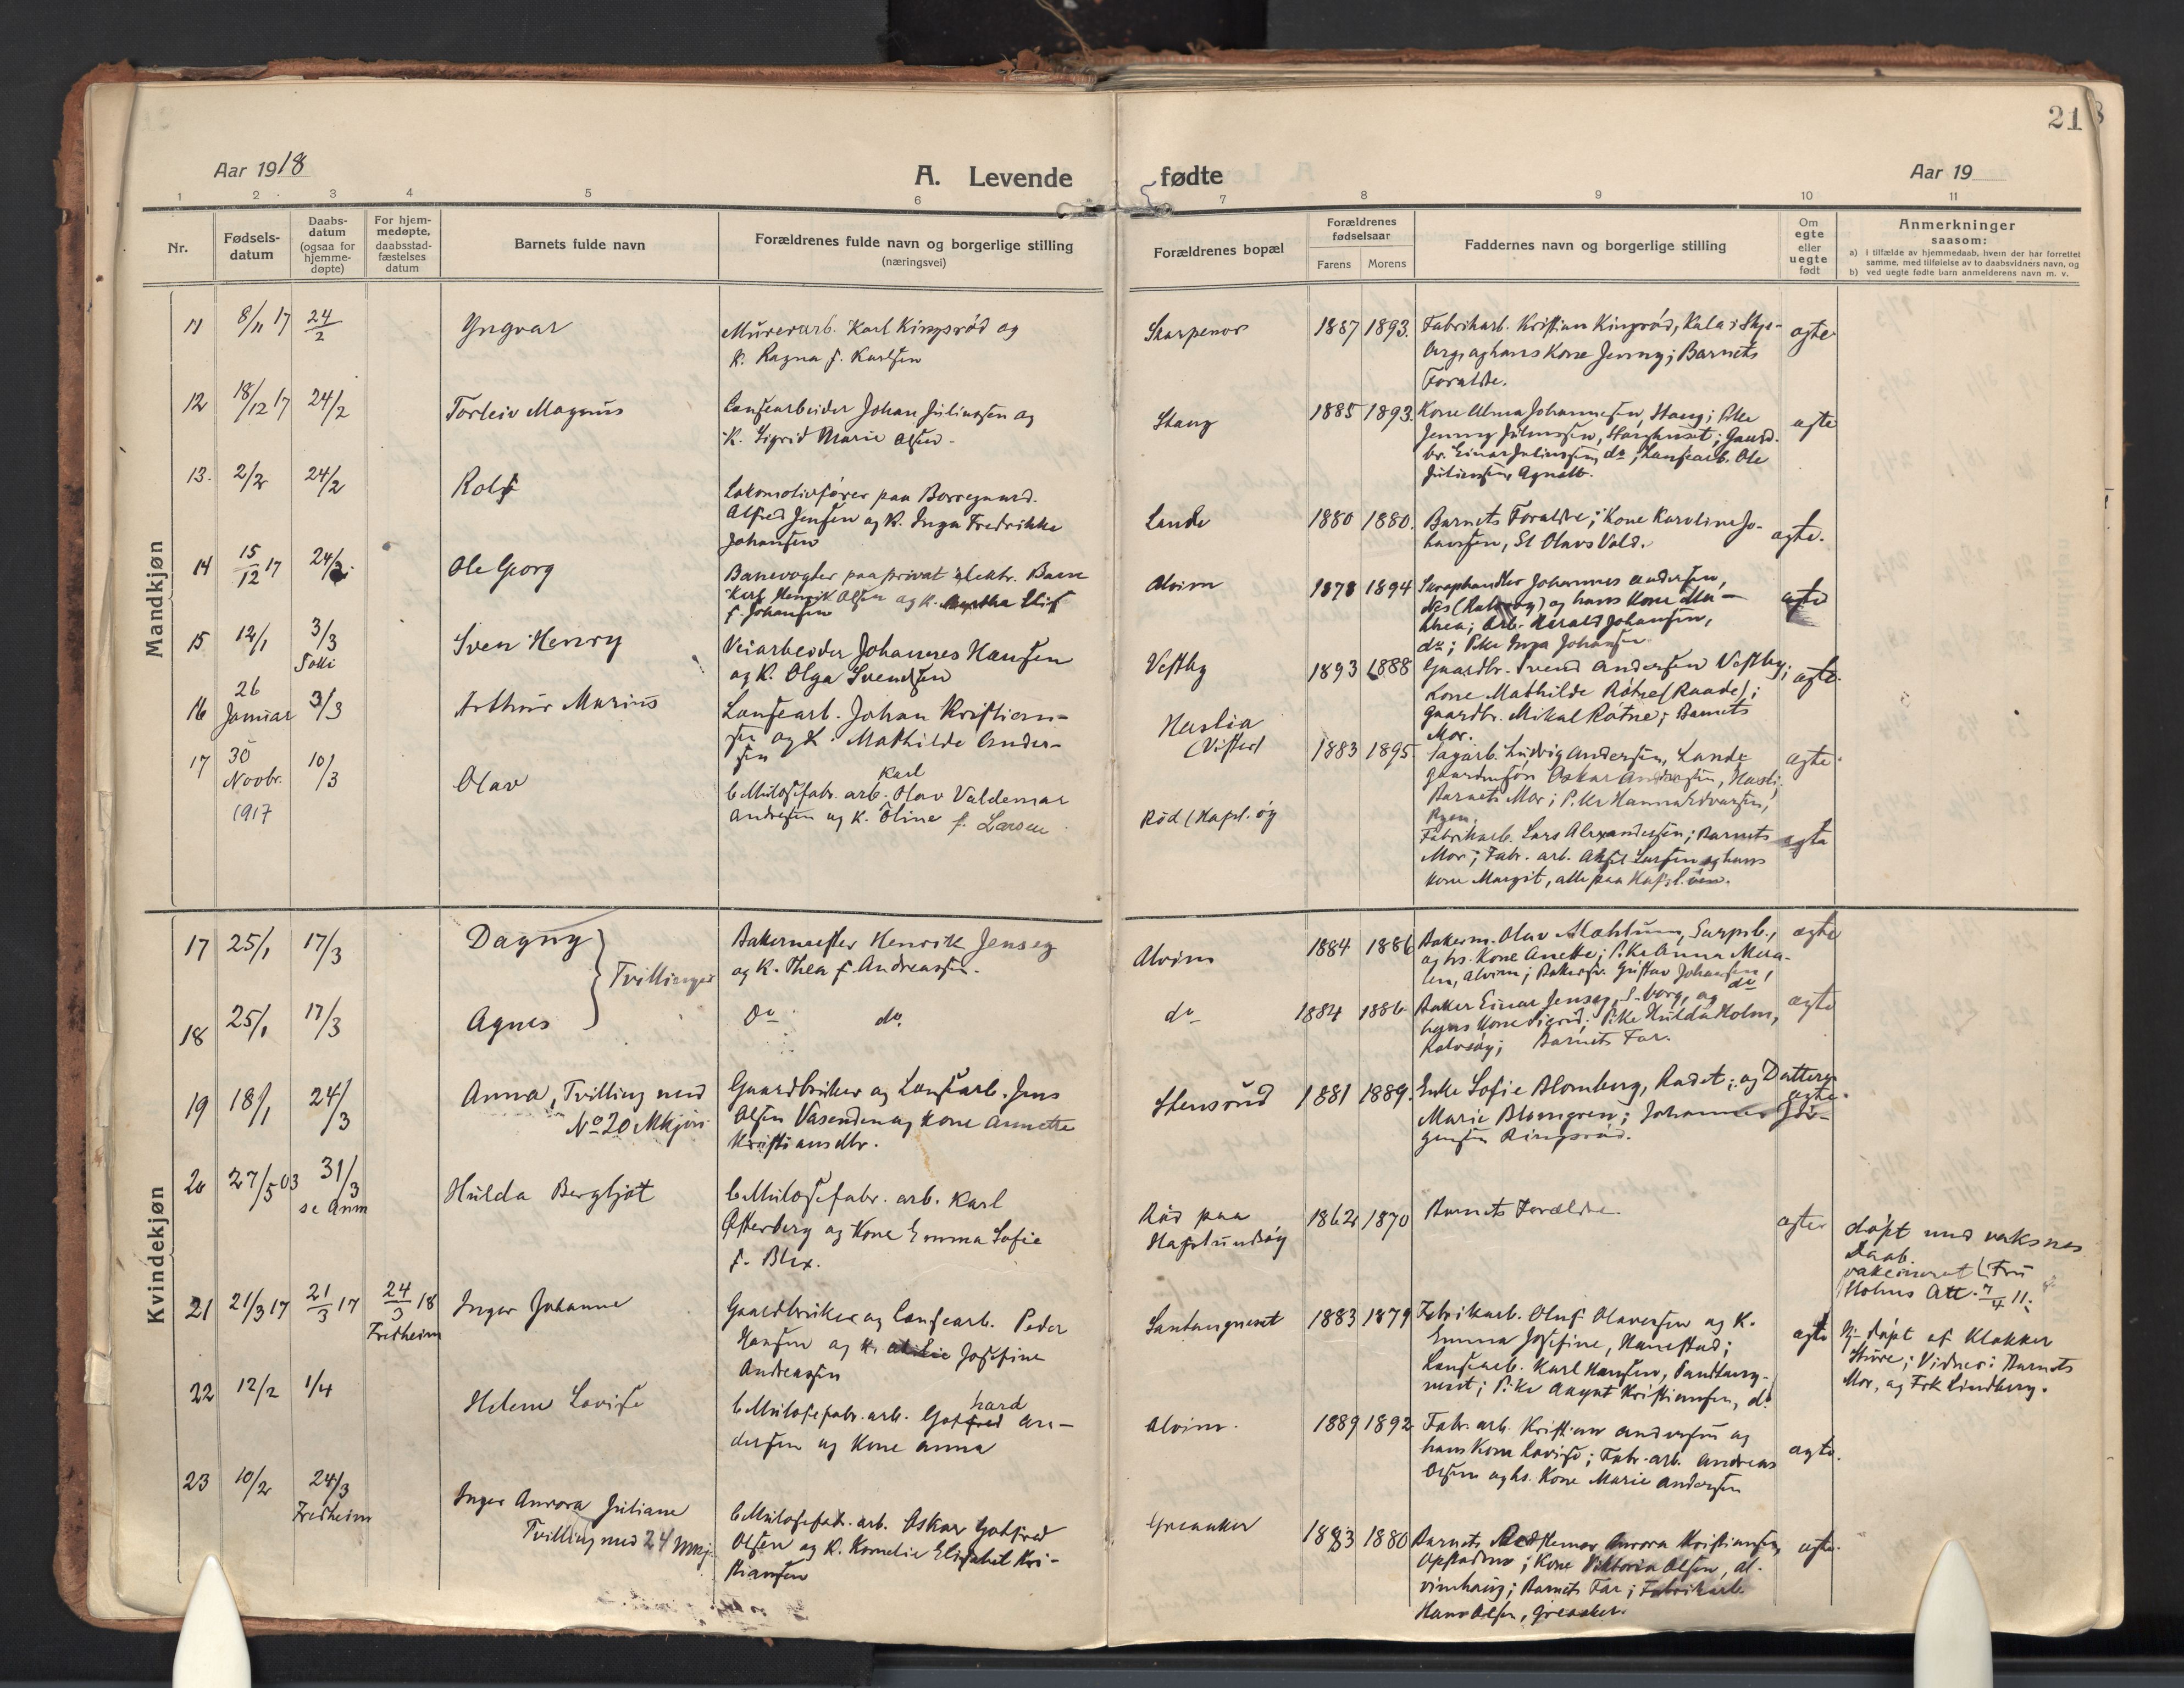 21
Aar 1918
A. Levende
fødte
Aar 19
1 2 3 4 5 6 7 8 9 10 11
Nr.
Fødsels-
datum
Daabs-
datum
(ogsaa for
hjemme-
døpte)
For hjem-
medøpte,
daabsstad-
fæstelses
datum
Barnets fulde navn
Forældrenes fulde navn og borgerlige stilling
(næringsvei)
Forældrenes bopæl
Forældrenes
fødselsaar
Farens Morens
Faddernes navn og borgerlige stilling
Om
egte
eller
uegte
født
Anmerkninger
saasom:
a) i tilfælde av hjemmedaab, hvem der har forrettet
samme, med tilføielse av to daabsvidners navn, og
b) ved uegte fødte barn anmelderens navn m. v.
Mandkjøn
11 8/11 17 24/2 Yngvar
Murerarb. Karl Kingsrød og
K. Ragna f. Karlsen
Skarpenor 1887 1893.
Fabrikarb. Kristian Kingsrød, Kala i Skje-
berg, og hans Kone Jenny; Barnets
Forældre.
ægte
12 18/12 17 24/2 Torleiv Magnus
Lansearbeider Johan Juliussen og
K. Sigrid Marie Olsen
Stang 1885 1893.
Kone Alma Johannesen, Stang; Pike
Jenny Juliussen, Stanghuset; Gaard-
br. Einar Juliussen, do; Lansearb. Ole
Juliussen Agnalt.
ægte
13. 2/2 24/2 Rolf
Lokomotivfører paa Borregaard
Alfred Jensen og K. Inga Fredrikke
Johansen
Lande 1880 1880.
Barnets Forældre; Kone Karoline Jo-
hansen, St Olavs Vold.
ægte.
14 15/12 17 24/2. Ole Georg
Banevogter paa privat elektr. Bane
Karl Henrik Olsen og K. Martha
f. Johansen
Alvim 1878 1894
Johannes Andersen,
og hans Kone Ma-
thea; Arb. Harald Johansen,
do; Pike Inga Johansen
ægte
15 12/1 3/3 Sven Henry
Veiarbeider Johannes Hansen
og K. Olga Svendsen
Vestby 1893 1888
Gaardbr. Svend Andersen Vestby;
Kone Mathilde Røtne (Raade);
Gaardbr. Mikal Røtne; Barnets
Mor.
ægte.
16 26 Januar 3/3 Arthur Marius
Lansearb. Johan Kristian-
sen og K. Mathilde Ander-
sen
Haslia
(Vister) 1883 1895
Sagarb. Ludvig Andersen, Lande
Gaardmsøn Oskar Andersen, Hasli;
Barnets Mor; Pike Hanna Edvarsen,
Ryen.
ægte.
17 30 Novbr. 1917 10/3 Olav
Karl
Cellulosefabr. arb. Olav Valdemar
Andresen og K. Oline f. Larsen
Rød (Hafsl. øy
Fabrikarb. Lars Alexandersen; Barnets
Mor; Fabr. arb. Aksel Larsen og hans
Kone Margit, alle paa Hafsl. øen.
ægte
Kvindekjøn
17 25/1 17/3 Dagny
Tvillinger
Bakermester Henrik Jenseg
og K. Thea f. Andreassen.
Alvim 1884 1886
Bakerm. Olav Mæhlum, Sarpsb.,
og hs. Kone Anette; Pike Anna Mæh-
len, Alvim; Bakersv. Gustav Johansen,
do
ægte
18 25/1 17/3 Agnes
Do do.
do 1884 1886
Baker Einar Jenseg, S-borg, og
hans Kone Sigrid; Pike Hulda Holm,
Kalvsøy; Barnets Far.
ægte
19 18/1 24/3 Anna, Tvilling med
No 20 Mkjøn
Gaardbruker og Lansearb. Jens
Olsen Vasenden og Kone Annette
Kristiansdtr.
Stensrud 1881 1889.
Enke Sofie Blomberg, Radet; og Datteren
Marie Blomgren; Johannes Jør-
gensen Kingsrød.
ægte.
20 27/5 03 31/3
se Anm
Hulda Bergljot
Cellulosefabr. arb. Karl
Østerberg og Kone Emma Sofie
f. Blix.
Rød paa
Hafslundsøy 1862 1870
Barnets Forældre
ægte
døpt med voksnes
Daab.
vakcineret (Fru
Holms Att. 7/4 11.
21 21/3 17 21/3 17 24/3 18
Fredheim
Inger Johanne
Gaardbruker og Lansearb. Peder
Hansen og K. Josefine
Andreassen
Sandangneset 1883 1879
Fabrikarb. Oluf Olaversen og K.
Emma Josefine, Hannestad;
Lansearb. Karl Hansen, Sandang-
neset; Pike Aagot Kristiansen, do
ægte
Hj-døpt af Klokker
Sture; Vidner: Barnets
Mor, og Frk Lindberg.
22 12/2 1/4 Helene Lovise
hard
Cellulosefabr. arb. Gotfred An-
dersen og Kone Anna
Alvim. 1889 1892
Fabr. arb. Kristian Andersen og
hans Kone Lovise; Fabr.-arb. Andreas
Olsen og hs. Kone Marie Andersen
ægte.
23 10/2 24/3
Fredheim
Inger Aurora Juliane
Tvilling med 24 Mkj.
Cellulosefab. arb. Oskar Gotfred
Olsen og K. Kornelie Elisabet Kri-
stiansen
Greaaker 1883 1880
Barnets Bedstemor Aurora Kristiansen,
Opstadmo; Kone Viktoria Olsen, Al-
vimhaug; Barnets Far; Fabrikarb.
Hans Olsen, Greaaker.
ægte.